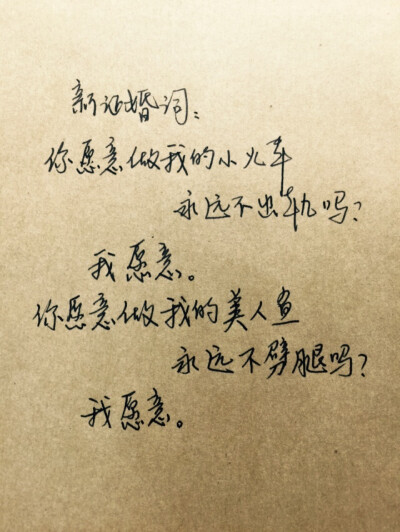 新证婚词：
你愿意做我的小火车
永远不出轨吗？
我愿意。
你愿意做我的美人鱼
永远不劈腿吗？
我愿意。